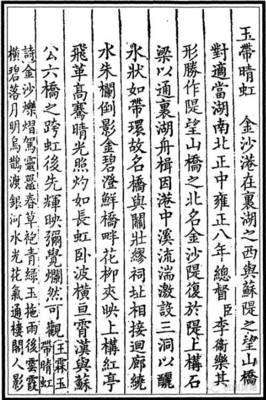 玉帶晴虹　金沙港在裏湖之西與蘇隄之望山橋
對適當湖南北正中雍正八年總督臣李衛樂其
形勝作隄望山橋之北名金沙隄復於隄上構石
梁以通裏湖舟楫因港中溪流湍激設三洞以釃
水狀如帶環故名橋與關壯繆祠址相接迴廊繞
水朱欄倒影金碧澄鮮橋畔花柳夾映上構紅亭
飛革高騫晴光照灼如長虹卧波橫亘霄漢與蘇
公六橋之跨虹後先輝映彌覺爛然可觀王霖玉帶晴虹
詩金沙爍熠駕靈鼉春草袍青綠玉拖雨後雲霞
橫碧落月明烏鵲渡銀河水光花氣通樓閣人影